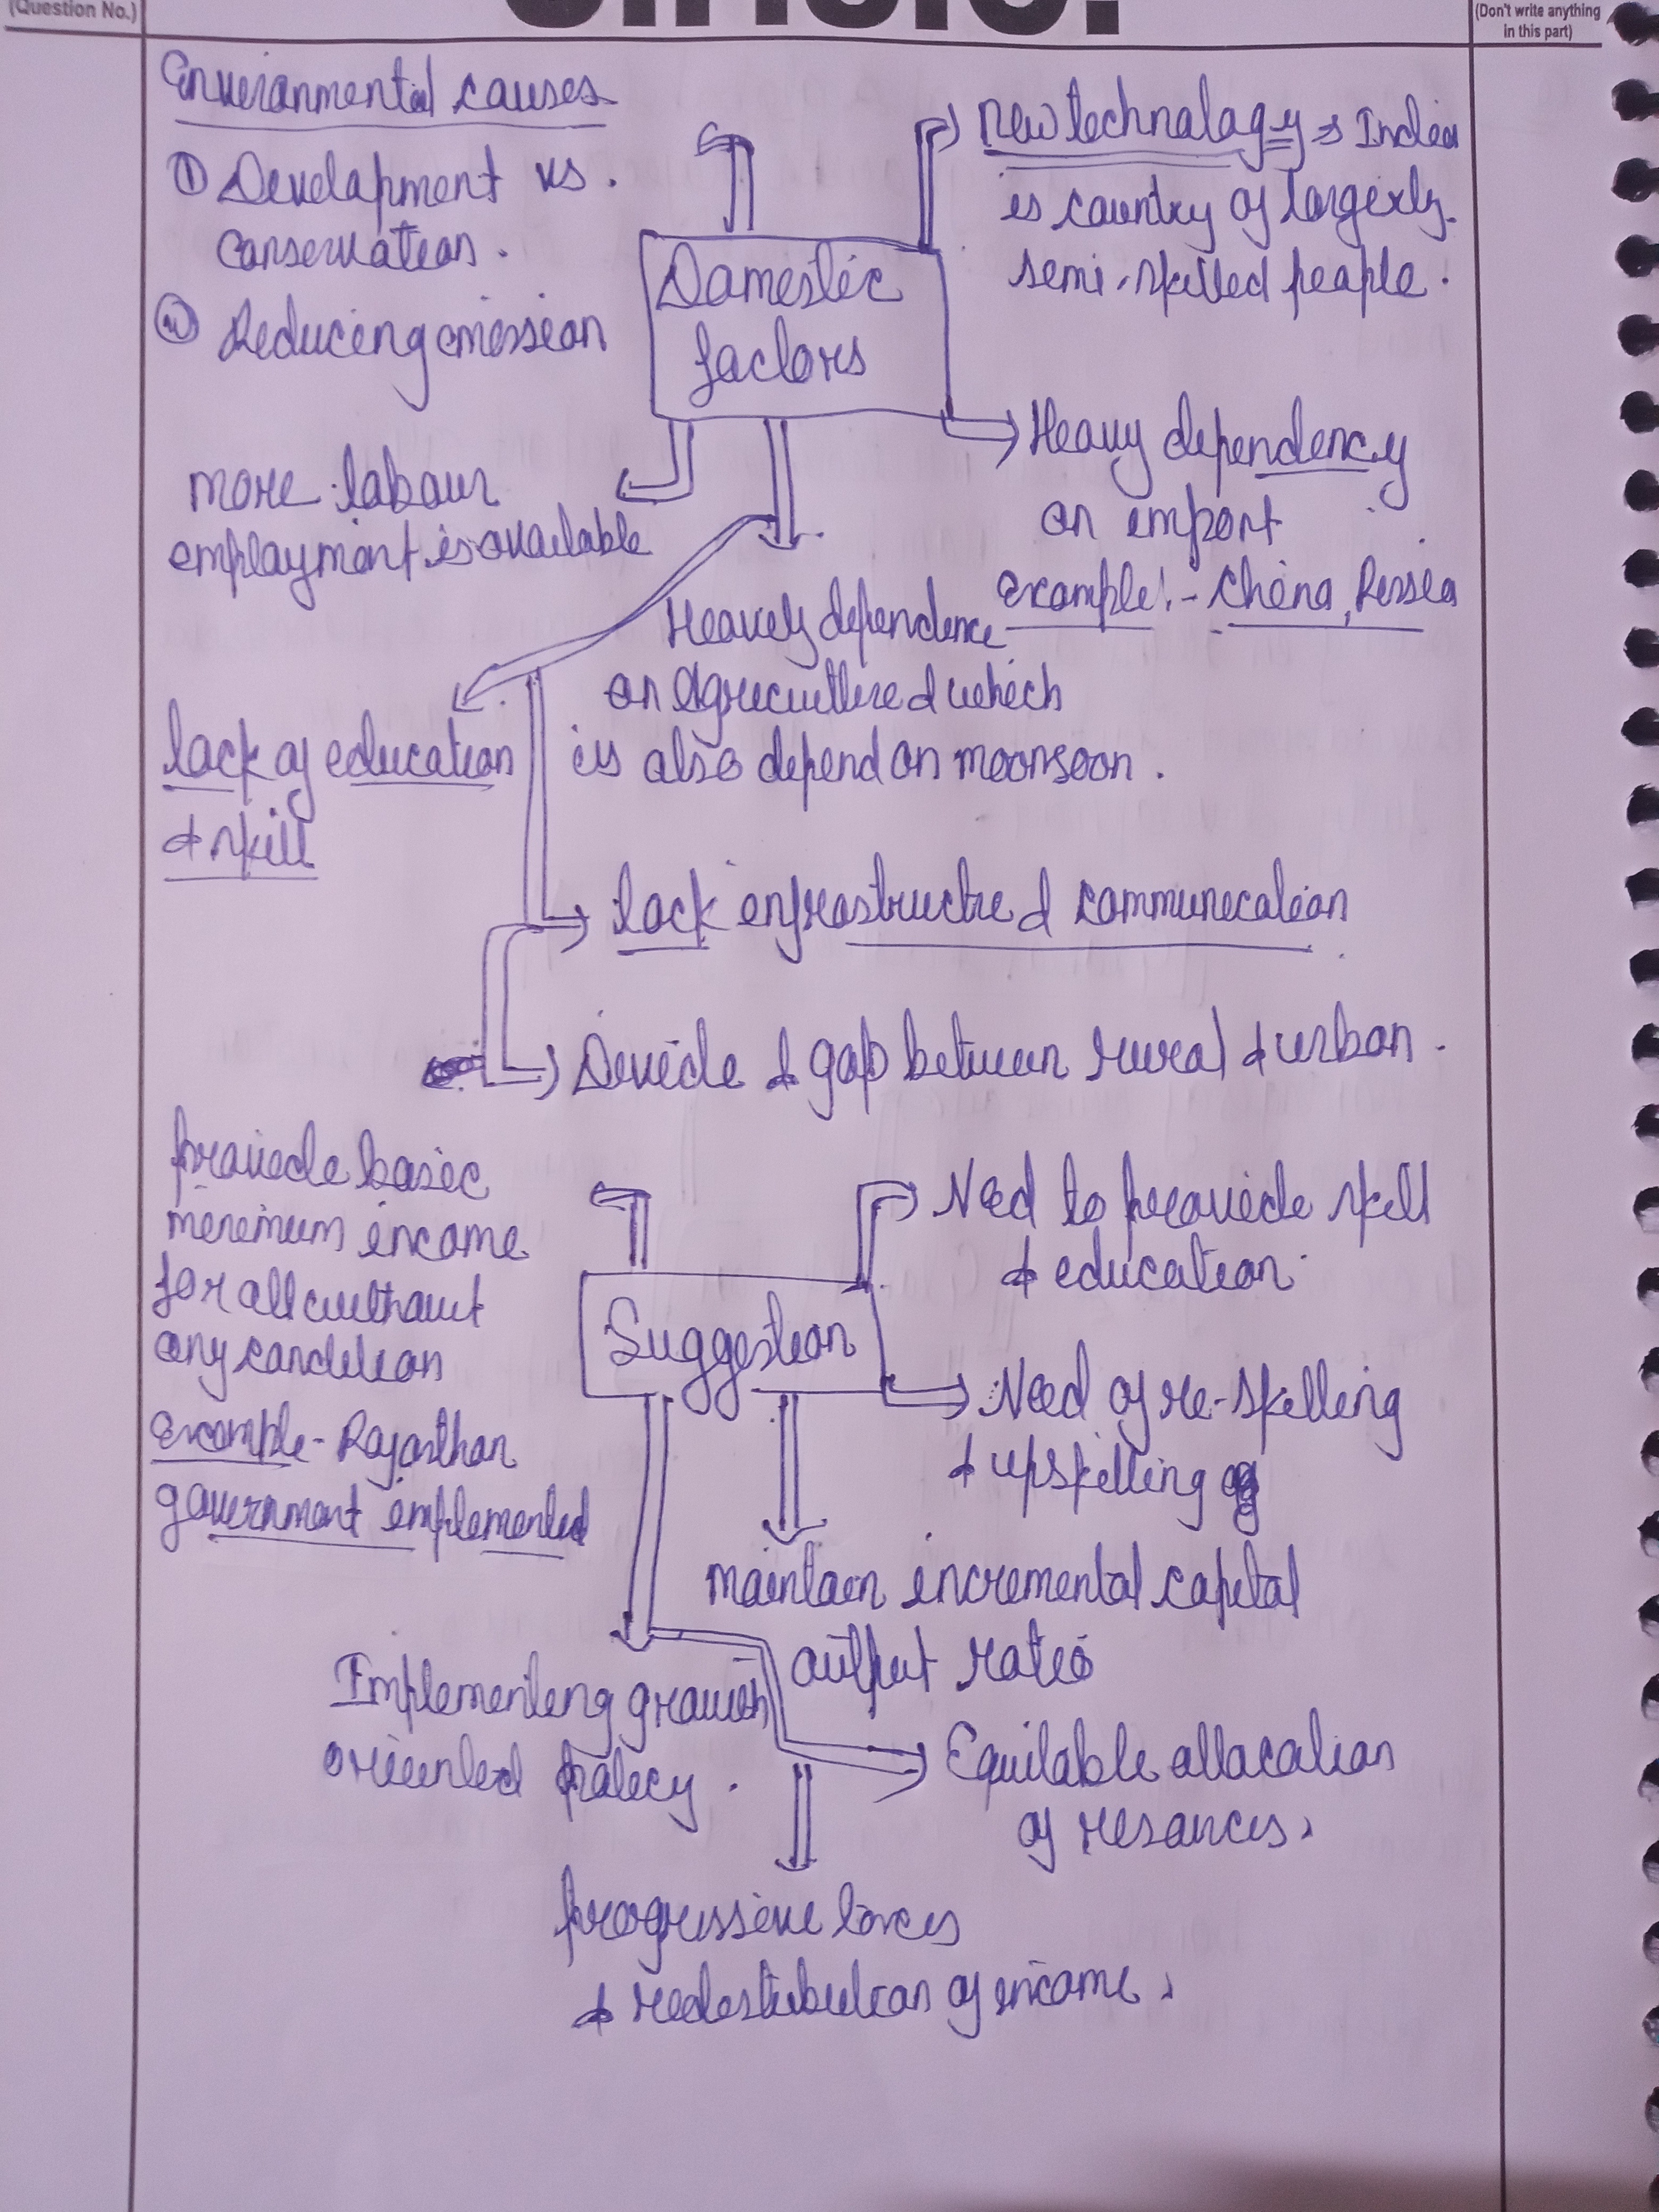 (Question No.)
(Don't write anything
in this part)
Enveiranmental causes
① Development vs.
conservation.
② Reducing emission
New technology ⇒ India
is country of largerly
semi-skilled people.
Domestic
factors
Heavy dependency
on import
Example:- China, Russia
more labour
employment is available
Heavely dependence
on Agriculture & which
is also depend on moonsoon.
lack of education
& skill
lack infrastructre & communication
Devide & gap between rural & urban.
provide basic
minimum income
for all without
any condition
Example- Rajasthan
government implemented
Need to provide skill
& education.
Suggestion
Need of re-skilling
& upskilling
maintain incremental capital
output ratio
Implementing growth
oriented policy.
Equitable allocation
of resources.
progressive
& redestubution of income.